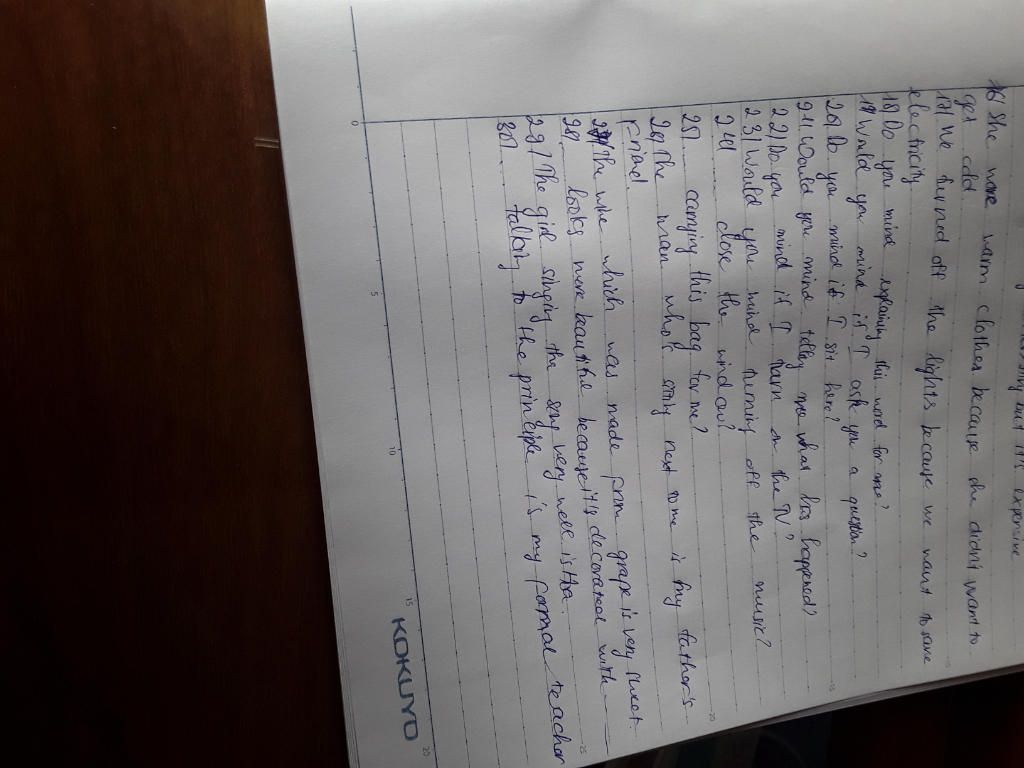 but it's expensive
16) She wore warm clothes because she didn't want to
get cold.
17) We turned off the lights because we want to save
electricity.
18) Do you mind explaining this word for me?
19) Would you mind if I ask you a question?
20) Do you mind if I sit here?
21) Would you mind telling me what has happened?
22) Do you mind if I turn on the TV?
23) Would you mind turning off the music?
24) close the window?
25) carrying this bag for me?
26) The man who's sitting next to me is my father's
friend.
27) The wine which was made from grape is very sweet.
28) looks more beautiful because it's decorated with
29) The girl singing the song very well is Hoa.
30) talking to the principle is my formal teacher
0 5 10 15 20
15
20
25
KOKUYO